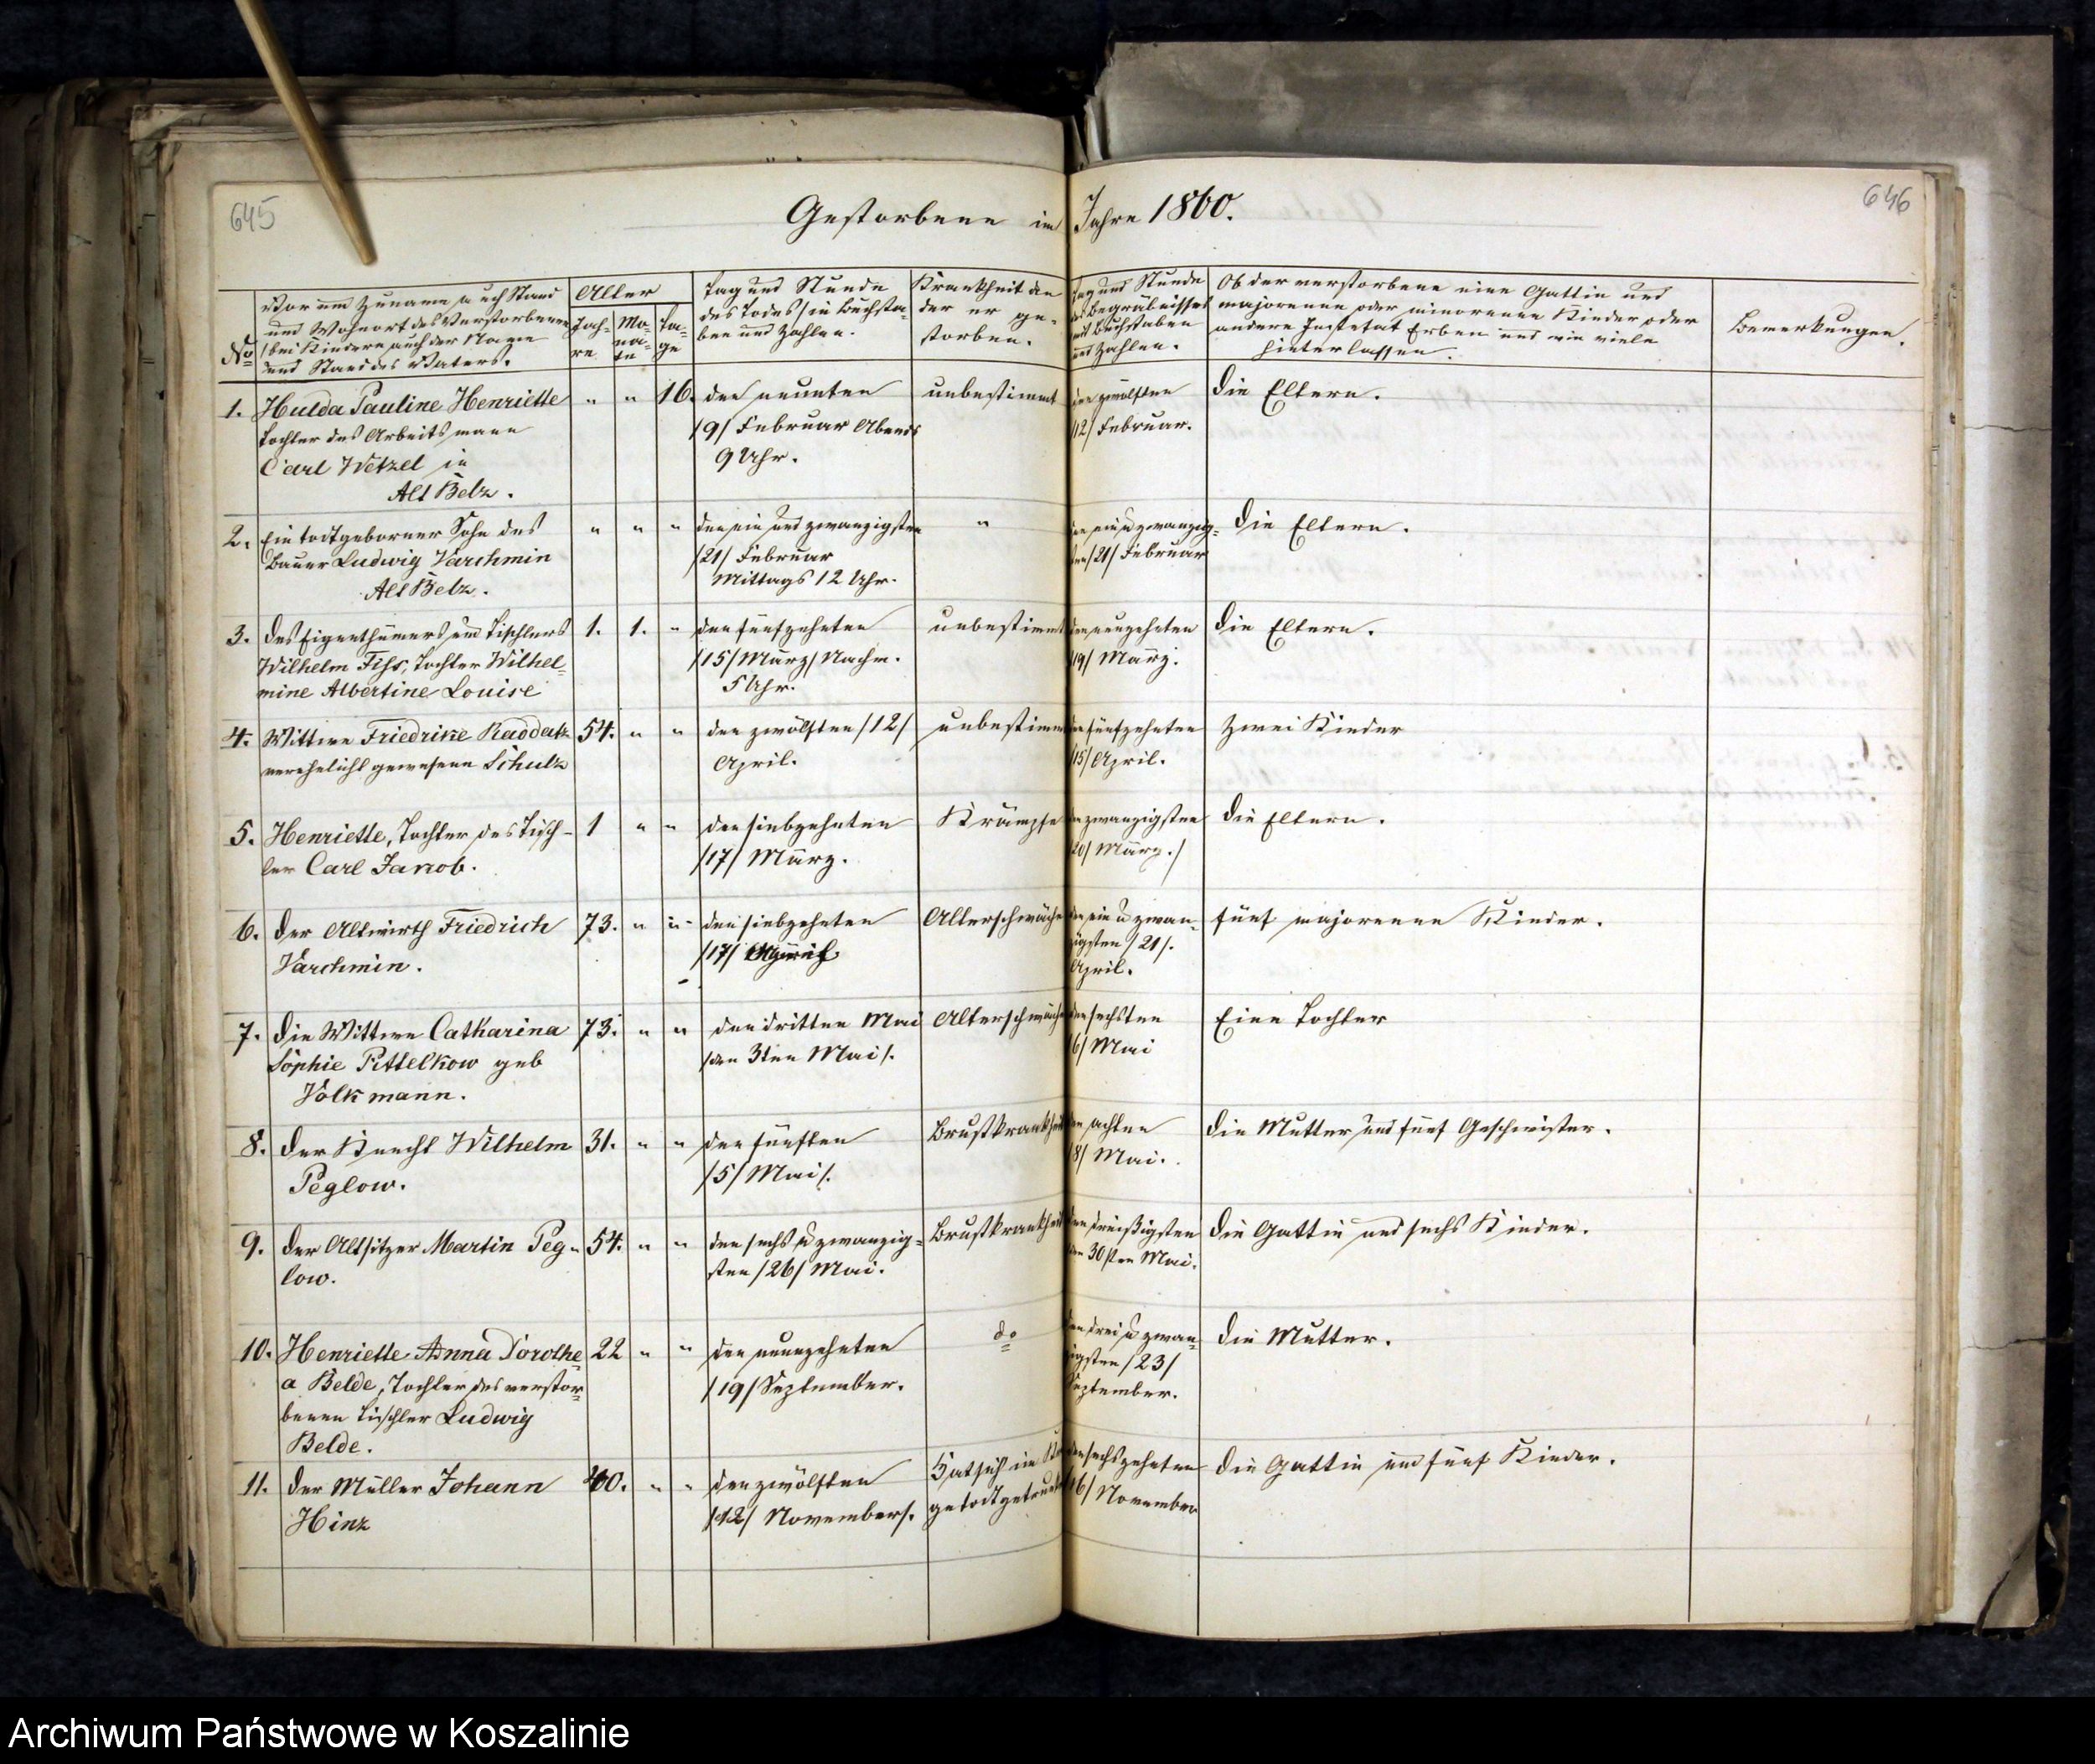 645
646
Gestorbene im Jahre 1860.
No
Vor und Zuname auch Stand
und Wohnort des Verstorbenen
/bei Kindern auch der Name
und Stand des Vaters.
Alter
Jah-
re
Mo-
na-
te
Ta-
ge
Tag und Stunde
des Todes /in Buchsta-
ben und Zahlen.
Krankheit an
der er ge-
storben.
Tag und Stunde
des Begräbnisses
mit Buchstaben
und Zahlen.
Ob der verstorbene eine Gattin und
majorenne oder minorenne Kinder oder
andere Erben und wie viele
hinterlassen.
Bemerkungen.
1. Hulda Pauline Henriette " " 16. den neunten unbestimmt den zwölften Die Eltern.
Tochter des Arbeitsmann /9/ Februar Abends /12/ Februar.
Carl Wetzel in 9 Uhr.
Alt Belz.
2. Ein todtgeborner Sohn des " " " den ein und zwanzigsten " den ein u zwanzig- Die Eltern.
Bauer Ludwig Varchmin /21/ Februar sten /21/ Februar
Alt Belz. Mittags 12 Uhr.
3. Des Eigenthümers und Tischlers 1. 1. " den fünfzehnten unbestimmt den neunzehnten Die Eltern.
Wilhelm Tochter Wilhel- /15/ März/ Nachm. /19/ März.
mine Albertine Louise 5 Uhr.
4. Wittwe Friedrike Raddatz 54. " " den zwölften /12/ unbestimmt den fünfzehnten Zwei Kinder
verehelicht gewesene Schulz April. /15/ April.
5. Henriette, Tochter des Tisch- 1 " " den siebzehnten Krämpfe den zwanzigsten Die Eltern.
ler Carl Jancob. /17/ März. /20/ März./
6. Der Altwirth Friedrich 73. " " den siebzehnten Alterschwäche den ein u zwan- fünf majorenne Kinder.
Varchmin. /17/ zigsten /21/.
April.
7. Die Wittwe Catharina 73. " " den dritten Mai Alterschwäche den sechsten Eine Tochter
Sophie Pittelkow geb /den 3ten Mai/. /6/ Mai
Volkmann.
8. Der Knecht Wilhelm 31. " " den fünften Brustkrankheit den achten Die Mutter und fünf Geschwister.
Peglow. /5/ Mai/. /8/ Mai.
9. Der Altsitzer Martin Peg- 54. " " den sechs u zwanzig- Brustkrankheit den dreißigsten Die Gattin und sechs Kinder.
low. sten /26/ Mai. den 30sten Mai.
10. Henriette Anna Dorothe- 22 " " den neunzehnten do den drei u zwan- Die Mutter.
a Belde, Tochter des verstor- /19/ September. zigsten /23/
benen Tischler Ludwig September.
Belde.
11. Der Müller Johann 40. " " den zwölften Hat sich im den sechszehnten Die Gattin und fünf Kinder.
Hinz /12/ November/. /16/ November
Archiwum Państwowe w Koszalinie